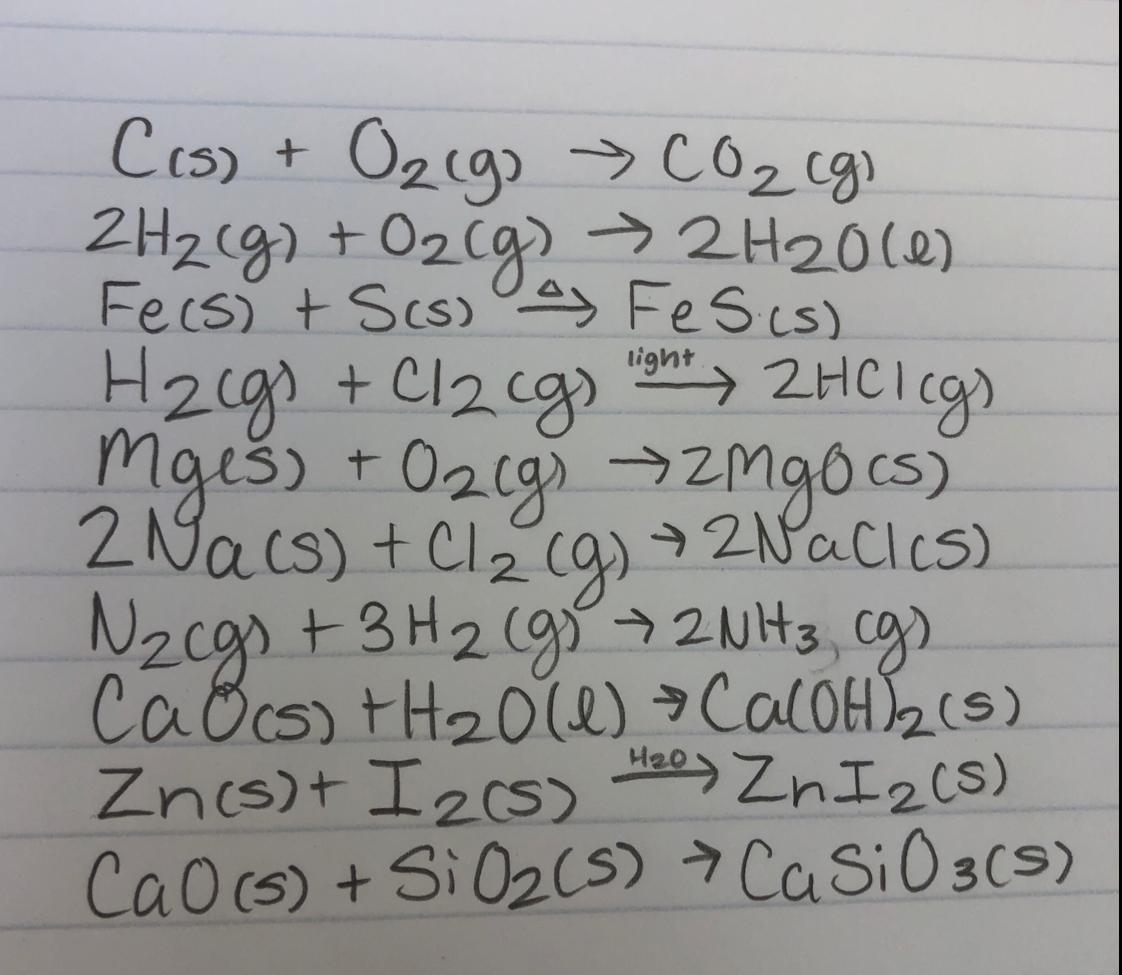 C(s) + O2(g) → CO2(g)
2H2(g) + O2(g) → 2H2O(l)
Fe(s) + S(s) Δ→ FeS(s)
H2(g) + Cl2(g) light→ 2HCl(g)
Mg(s) + O2(g) → 2MgO(s)
2Na(s) + Cl2(g) → 2NaCl(s)
N2(g) + 3H2(g) → 2NH3(g)
CaO(s) + H2O(l) → Ca(OH)2(s)
Zn(s) + I2(s) H2O→ ZnI2(s)
CaO(s) + SiO2(s) → CaSiO3(s)